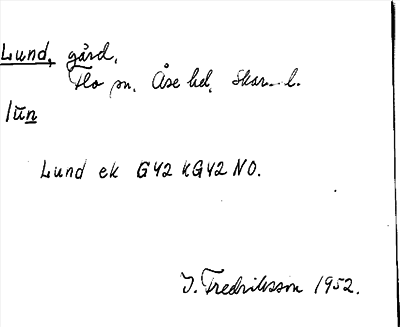 Lund, gård,
Flo sn, Åse hd, Skar. l.
lun
Lund ek GY2 KGY2 NO.
I. Fredriksson 1952.